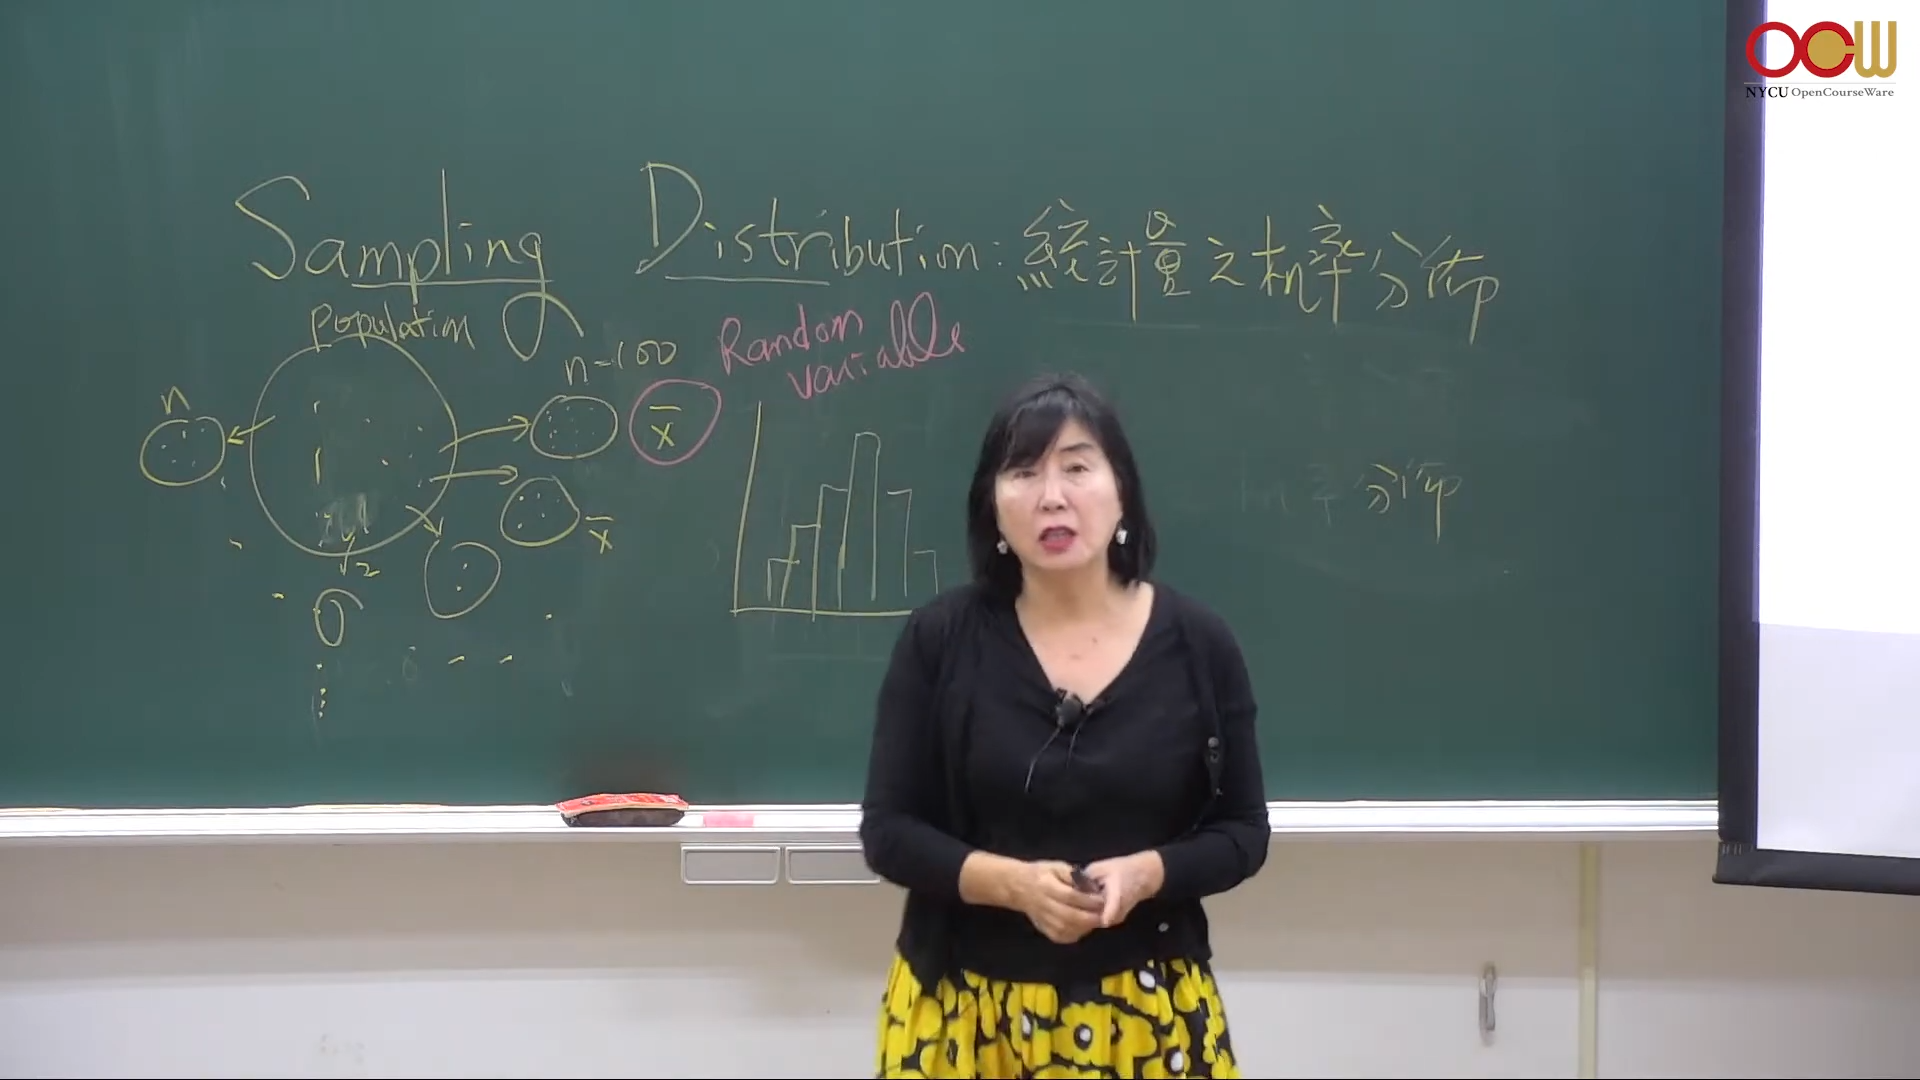 OCW
NYCU OpenCourseWare
Sampling Distribution: 統計量之机率分佈
population
Random variable
n=100
n
x̄
x̄
分佈